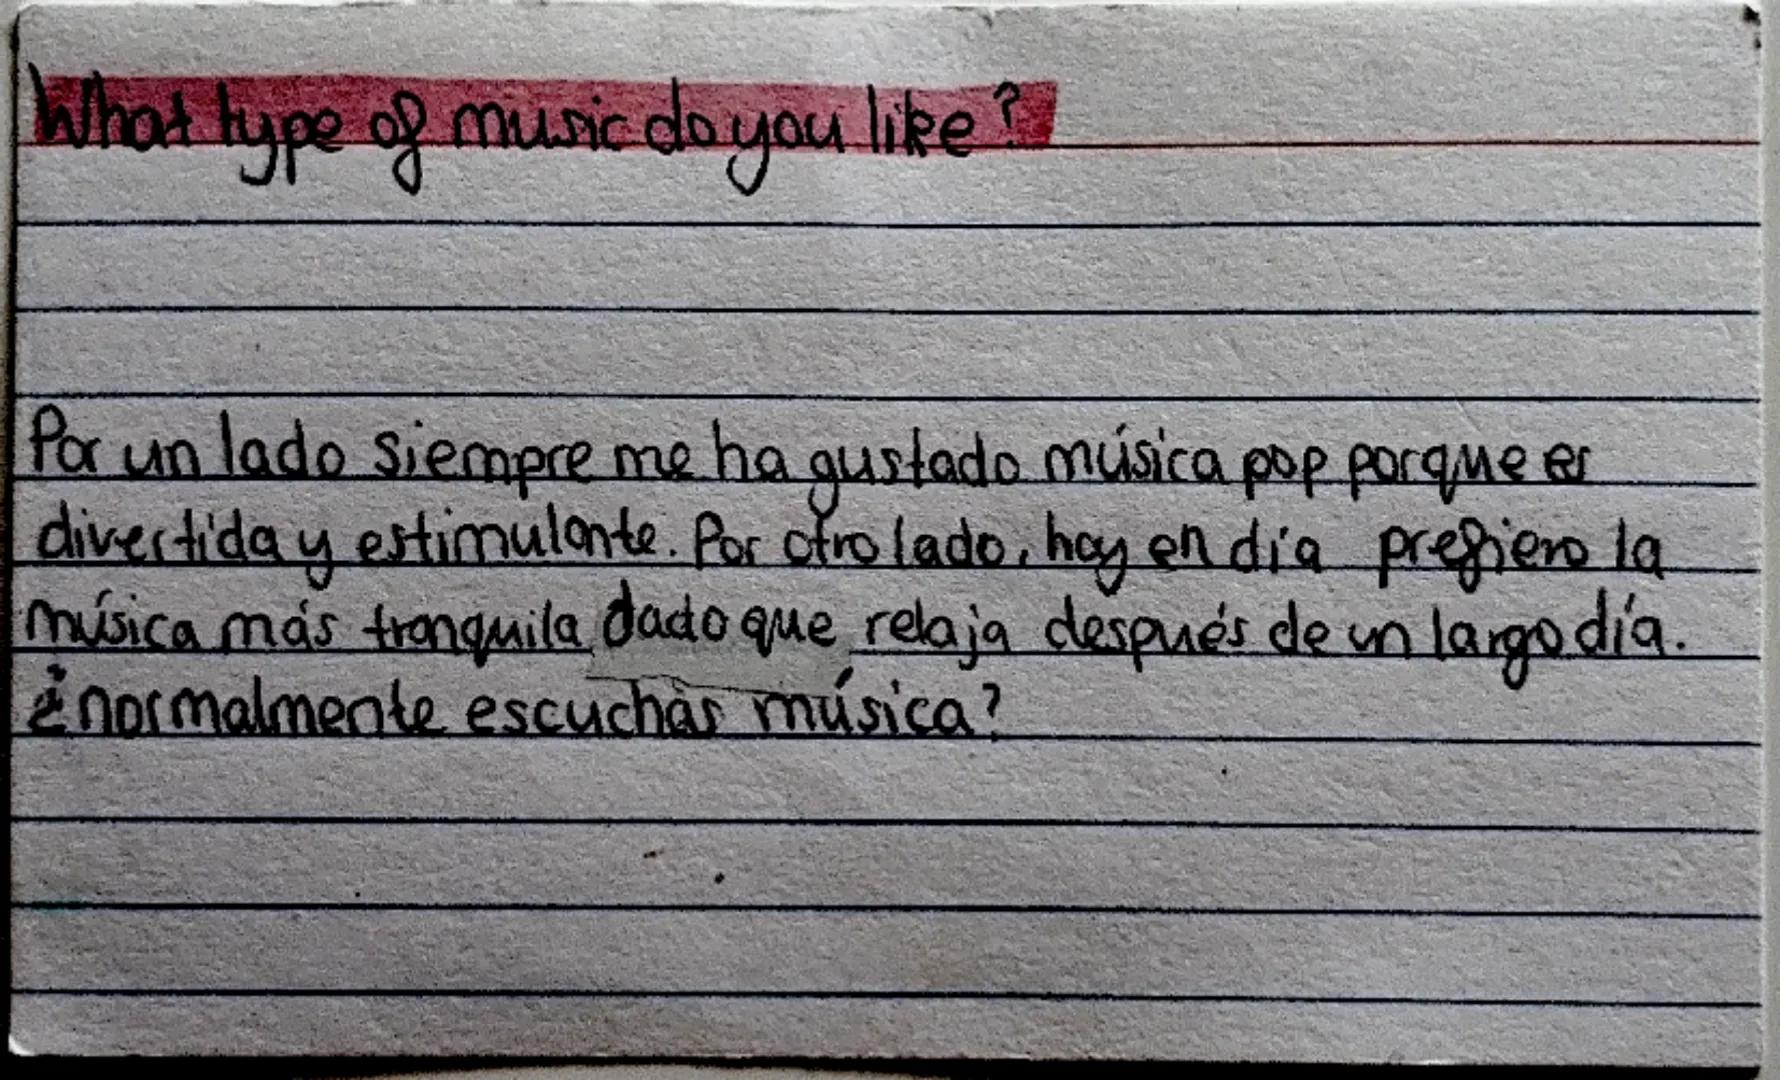 What type of music do you like?
Por un lado siempre me ha gustado música pop porque es
divertida y estimulante. Por otro lado, hoy en día prefiero la
música más tranquila dado que relaja después de un largo día.
¿normalmente escuchas música?